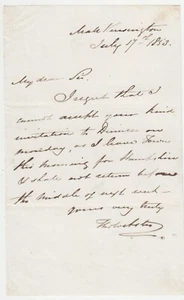 Kensington
July 17th 1853.
My dear Sir.
I regret that I
cannot accept your kind
invitation to Dinner on
monday, as I leave Town
this morning for Hampshire
& shall not return before
the middle of next week -
yours very truly